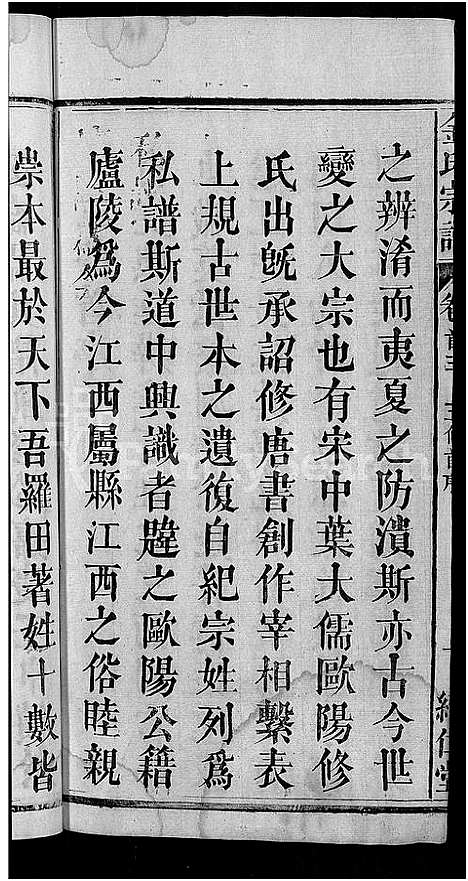 金氏宗譜
卷首
之辨淆而夷夏之防潰斯亦古今世
變之大宗也有宋中葉大儒歐陽修
氏出旣承詔修唐書創作宰相繫表
上規古世本之遺復自紀宗姓列爲
私譜斯道中興識者韙之歐陽公籍
廬陵爲今江西屬縣江西之俗睦親
崇本最於天下吾羅田著姓十數皆